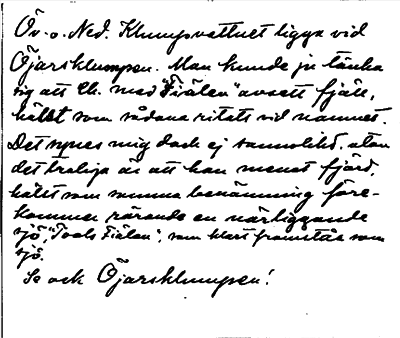 Öv. o. Ned. Klumpvattnet ligga vid
Öjarsklumpen. Man kunde ju tänka
sig att Eh. med "Fiälen" avsett fjäll,
hällst som sådana ritats vid namnet.
Det synes mig dock ej sannolikt, utan
det troliga är att han menat fjärd,
hällst som samma benämning före-
kommer rörande en närliggande
sjö, "Tools Fiälen", som klart framstår som
sjö.
Se ock Öjarsklumpen!